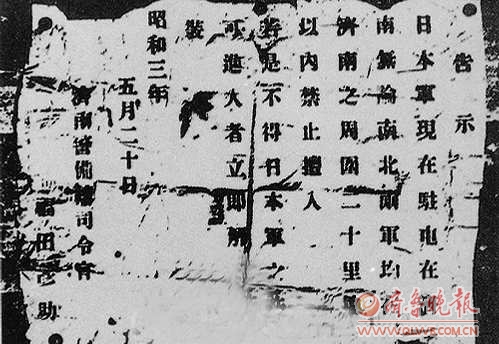 告示
日本軍現在駐屯在
南無論南北兩軍均
濟南之周圍二十里
以內禁止擅入
若是不得日本軍之
可進入者立即解
裝
昭和三年
五月二十日
濟南警備司令官
福田助
齐鲁晚报
www.qlwb.com.cn